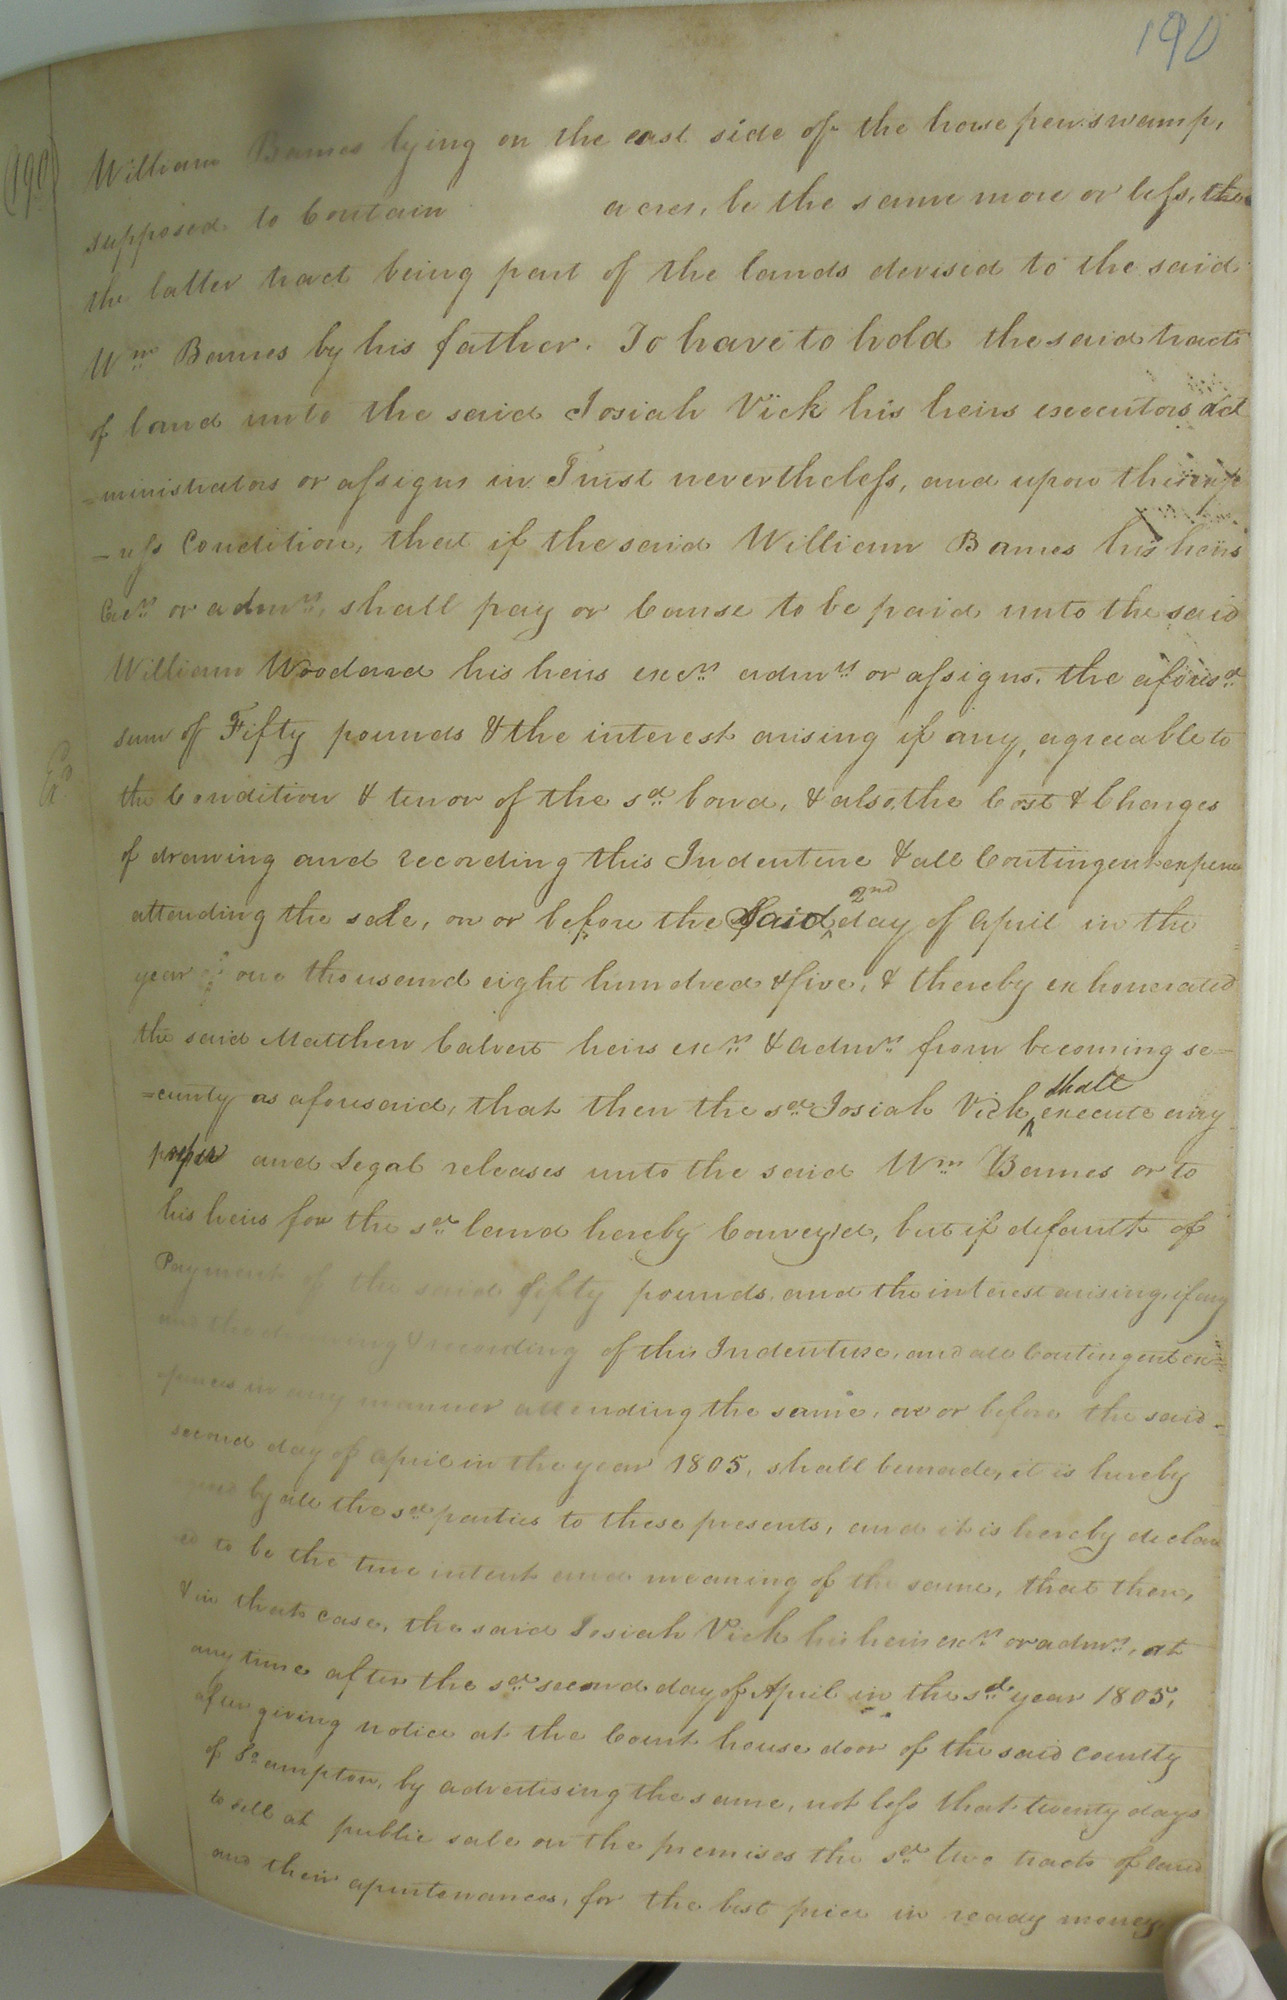 190
(190)
William Barnes lying on the east side of the horse pen swamp,
supposed to Contain acres, be the same more or less, the
the latter tract being part of the lands devised to the said
Wm Barnes by his father. To have to hold the said tracts
of land unto the said Josiah Vick his heirs executors ad
=ministrators or assigns in Trust nevertheless, and upon this exp
-ress Condition, that if the said William Barnes his heirs
Exrs or admrs, shall pay or Cause to be paid unto the said
William Woodard his heirs exrs admrs or assigns, the aforesd
sum of Fifty pounds & the interest arising if any, agreeable to
the Condition & tenor of the sd bond, & also, the Cost & Charges
of drawing and recording this Indenture & all Contingent expence
attending the sale, on or before the said 2nd day of April in the
year one thousand eight hundred & five, & thereby exhonerated
the said Matthew Calvert heirs exrs & admrs from becoming se-
=curity as aforesaid, that then the sd Josiah Vick shall execute any
proper and Legal releases unto the said Wm Barnes or to
his heirs for the sd land hereby Convey'd, but if default of
Payment of the said fifty pounds, and the interest arising, if any
and the drawing & recording of this Indenture, and all Contingent ex=
pences in any manner attending the same, on or before the said
second day of April in the year 1805, shall be made, it is hereby
by all the sd parties to these presents, and it is hereby declar
ed to be the true intent and meaning of the same, that then,
& in that case, the said Josiah Vick his heirs exrs or admrs, at
any time after the sd second day of April in the sd year 1805,
after giving notice at the Court house door of the said County
of So ampton, by advertising the same, not less that twenty days
to sell at public sale on the premises the sd two tracts of land
and their apurtenances, for the best price in ready money,